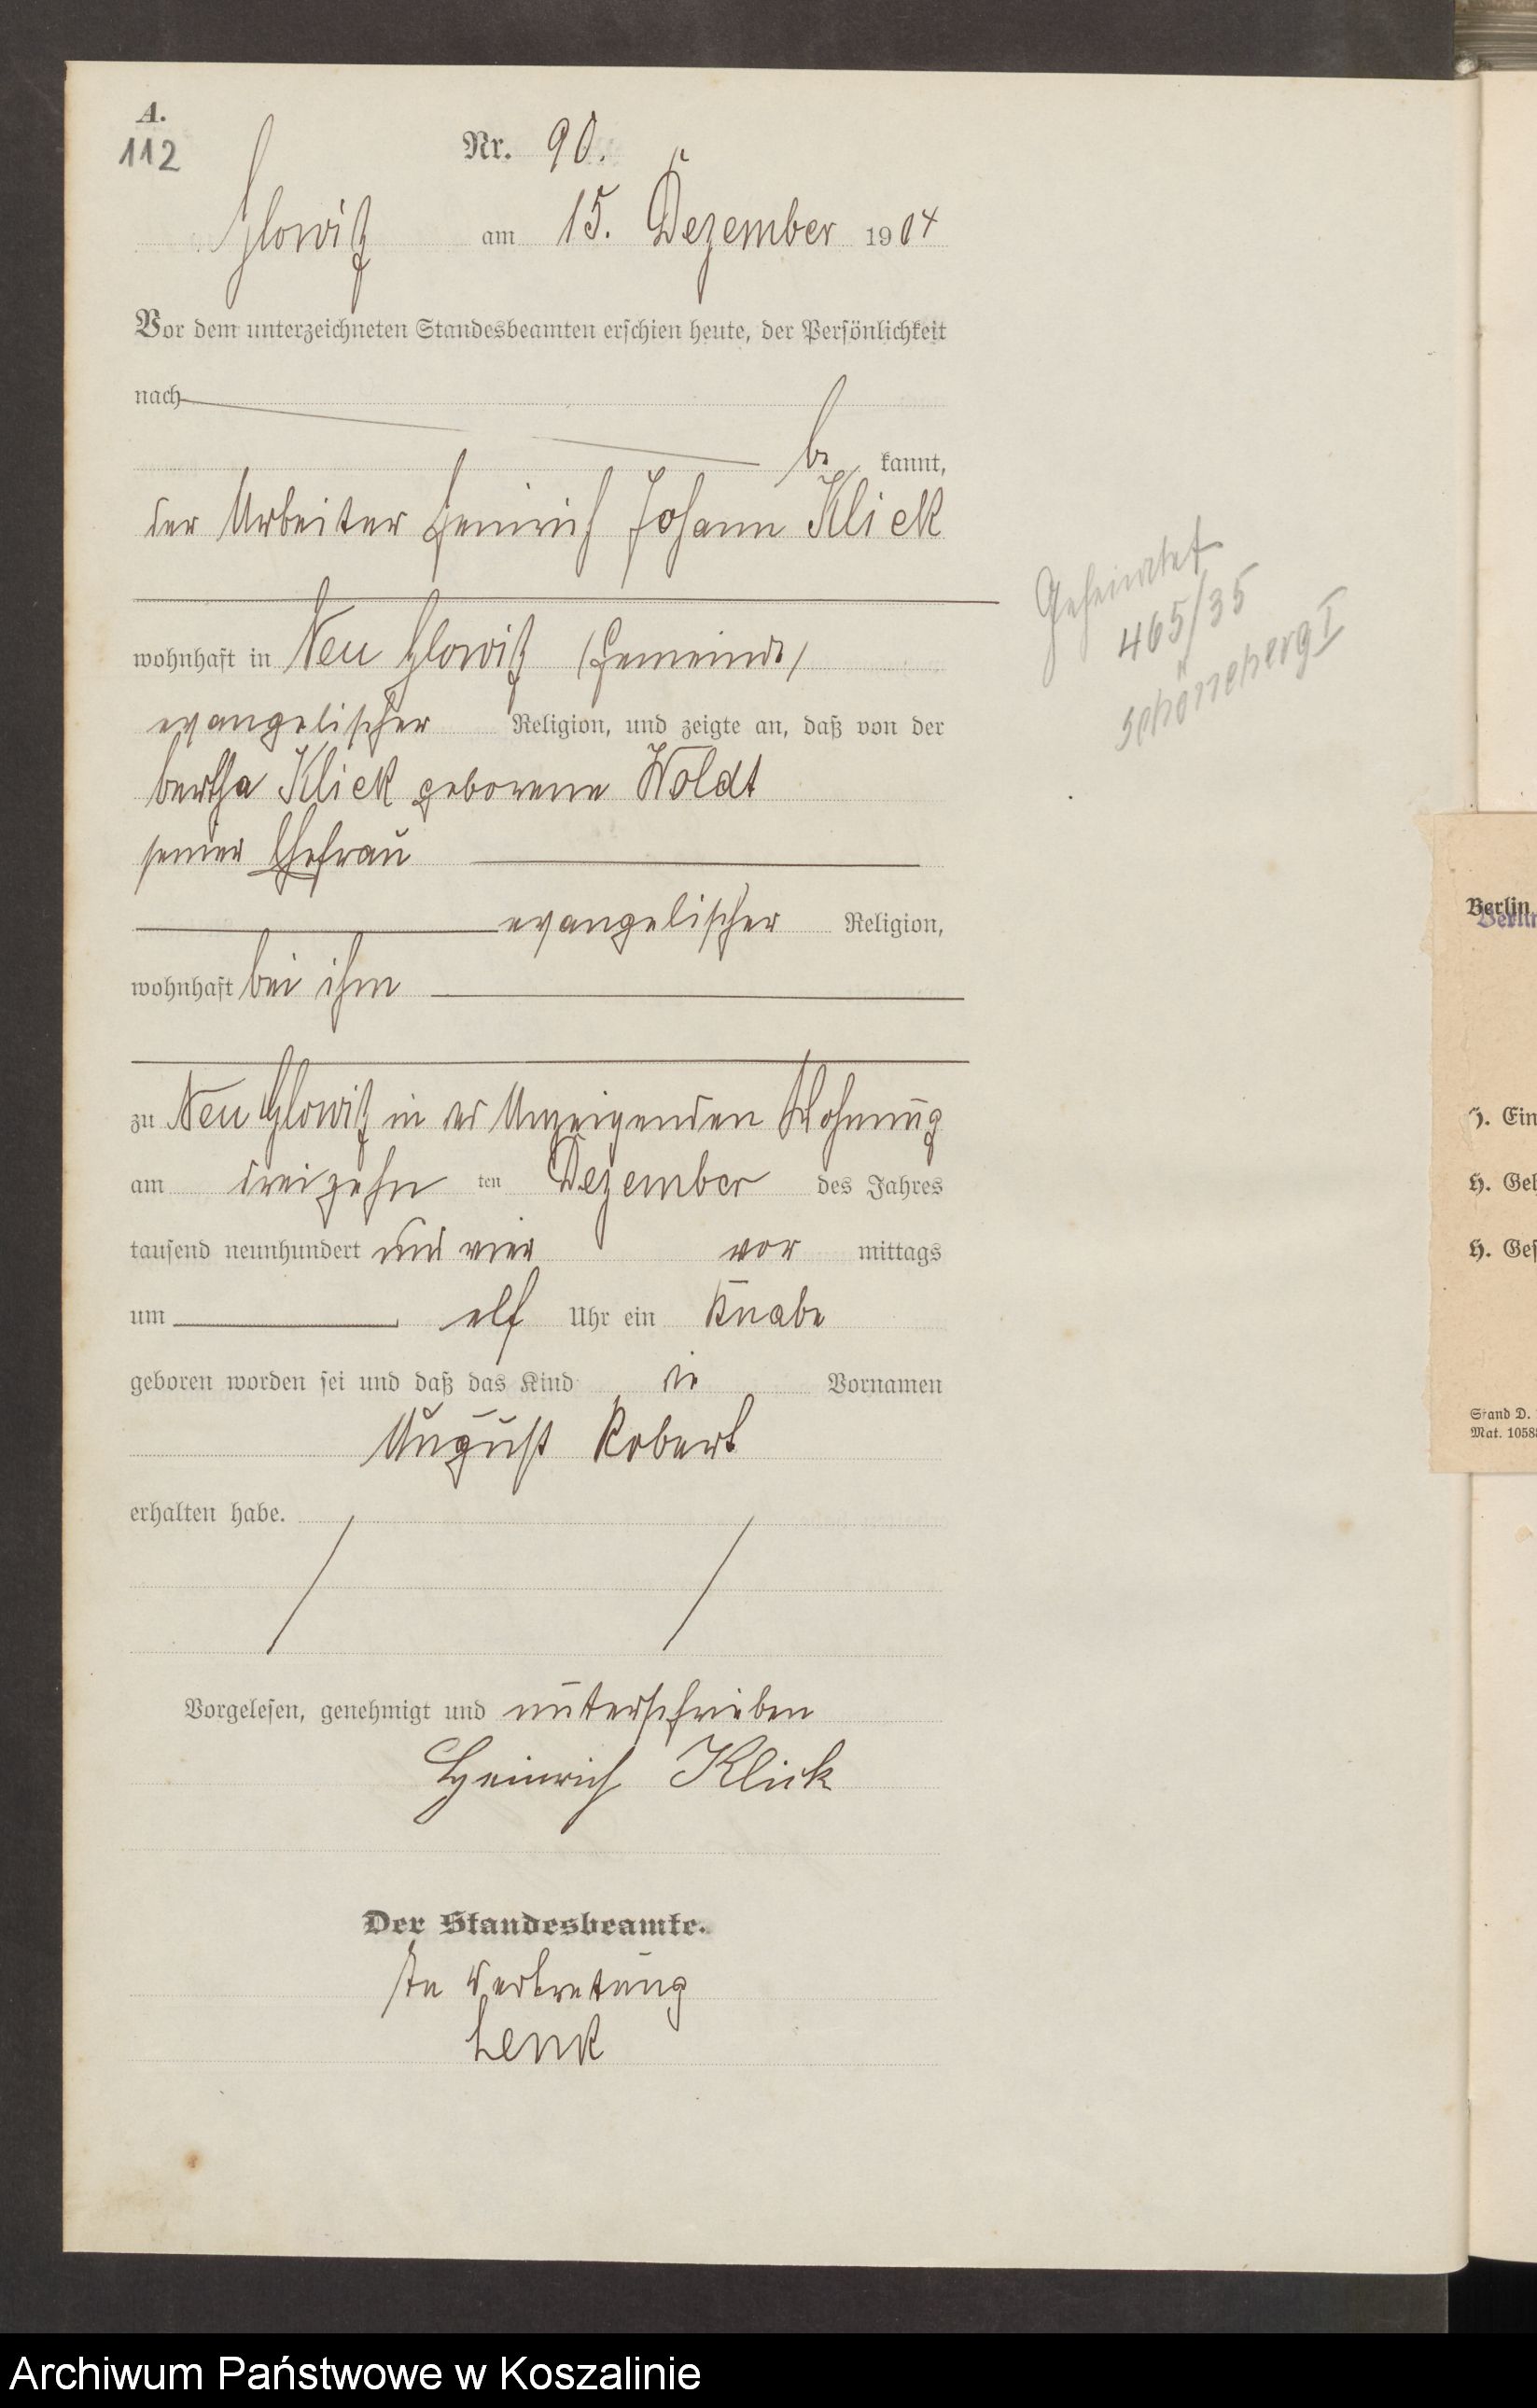 A.
112
Nr. 90.
Glowitz am 15. Dezember 1904
Vor dem unterzeichneten Standesbeamten erschien heute, der Persönlichkeit
nach
be kannt,
der Arbeiter Heinrich Johann Klick
wohnhaft in Neu Glowitz (Gemeinde)
evangelischer Religion, und zeigte an, daß von der
Bertha Klick geborene Woldt
seiner Ehefrau
evangelischer Religion,
wohnhaft bei ihm
zu Neu Glowitz in des Anzeigenden Wohnung
am dreizehn ten Dezember des Jahres
tausend neunhundert und vier vor mittags
um elf Uhr ein Knabe
geboren worden sei und daß das Kind die Vornamen
August Robert
erhalten habe.
Vorgelesen, genehmigt und unterschrieben
Heinrich Klick
Der Standesbeamte.
In Vertretung
Lenk
Geheiratet
465/35
Schöneberg I
Berlin
Berlin
H. Gel
H. Ges
Stand D.
Mat. 1058
Archiwum Państwowe w Koszalinie